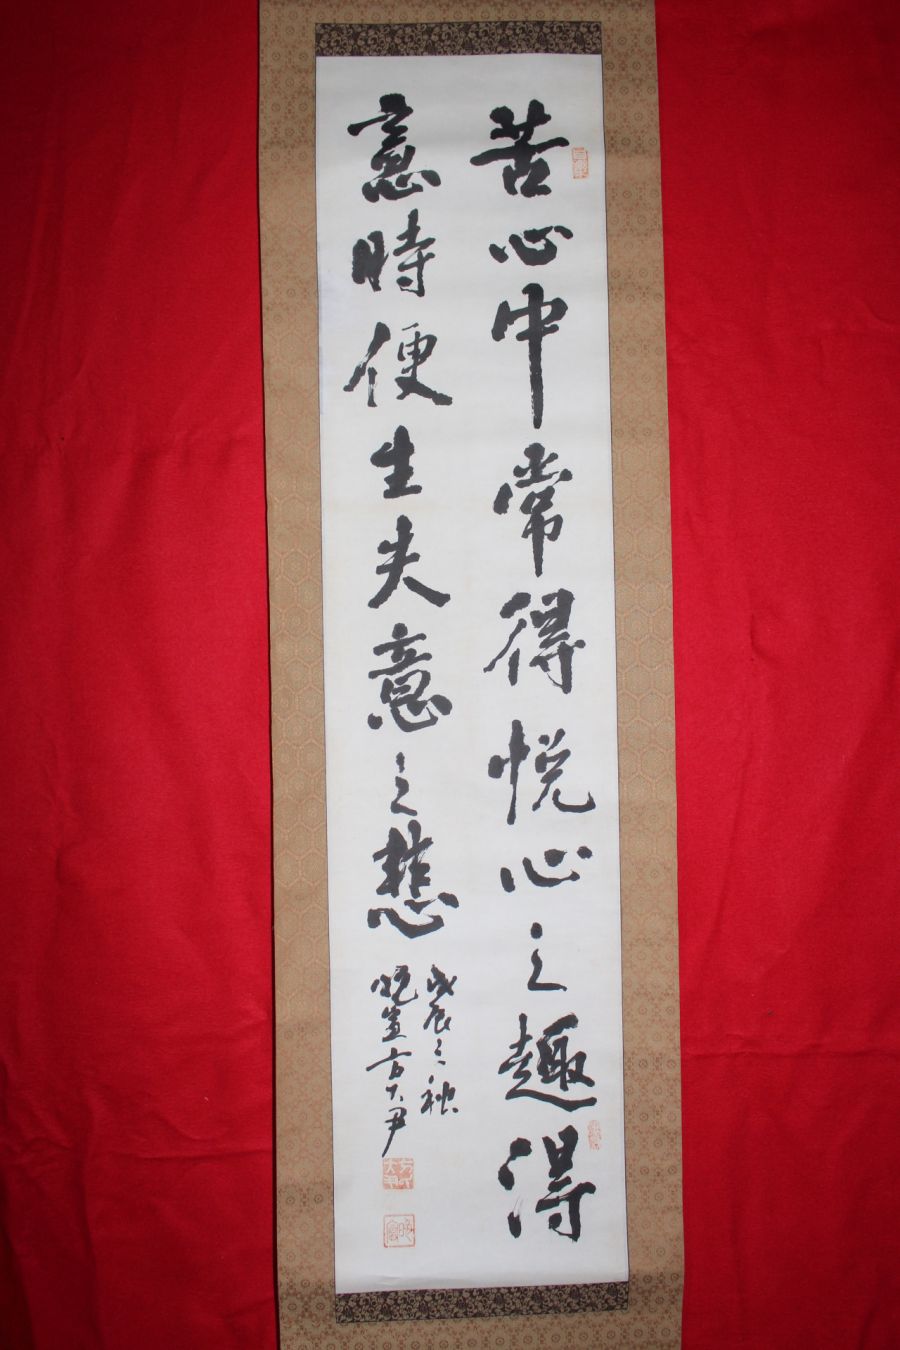 苦心中常得悦心之趣得
意時便生失意之愁
戊辰之秋
晚篁方大尹